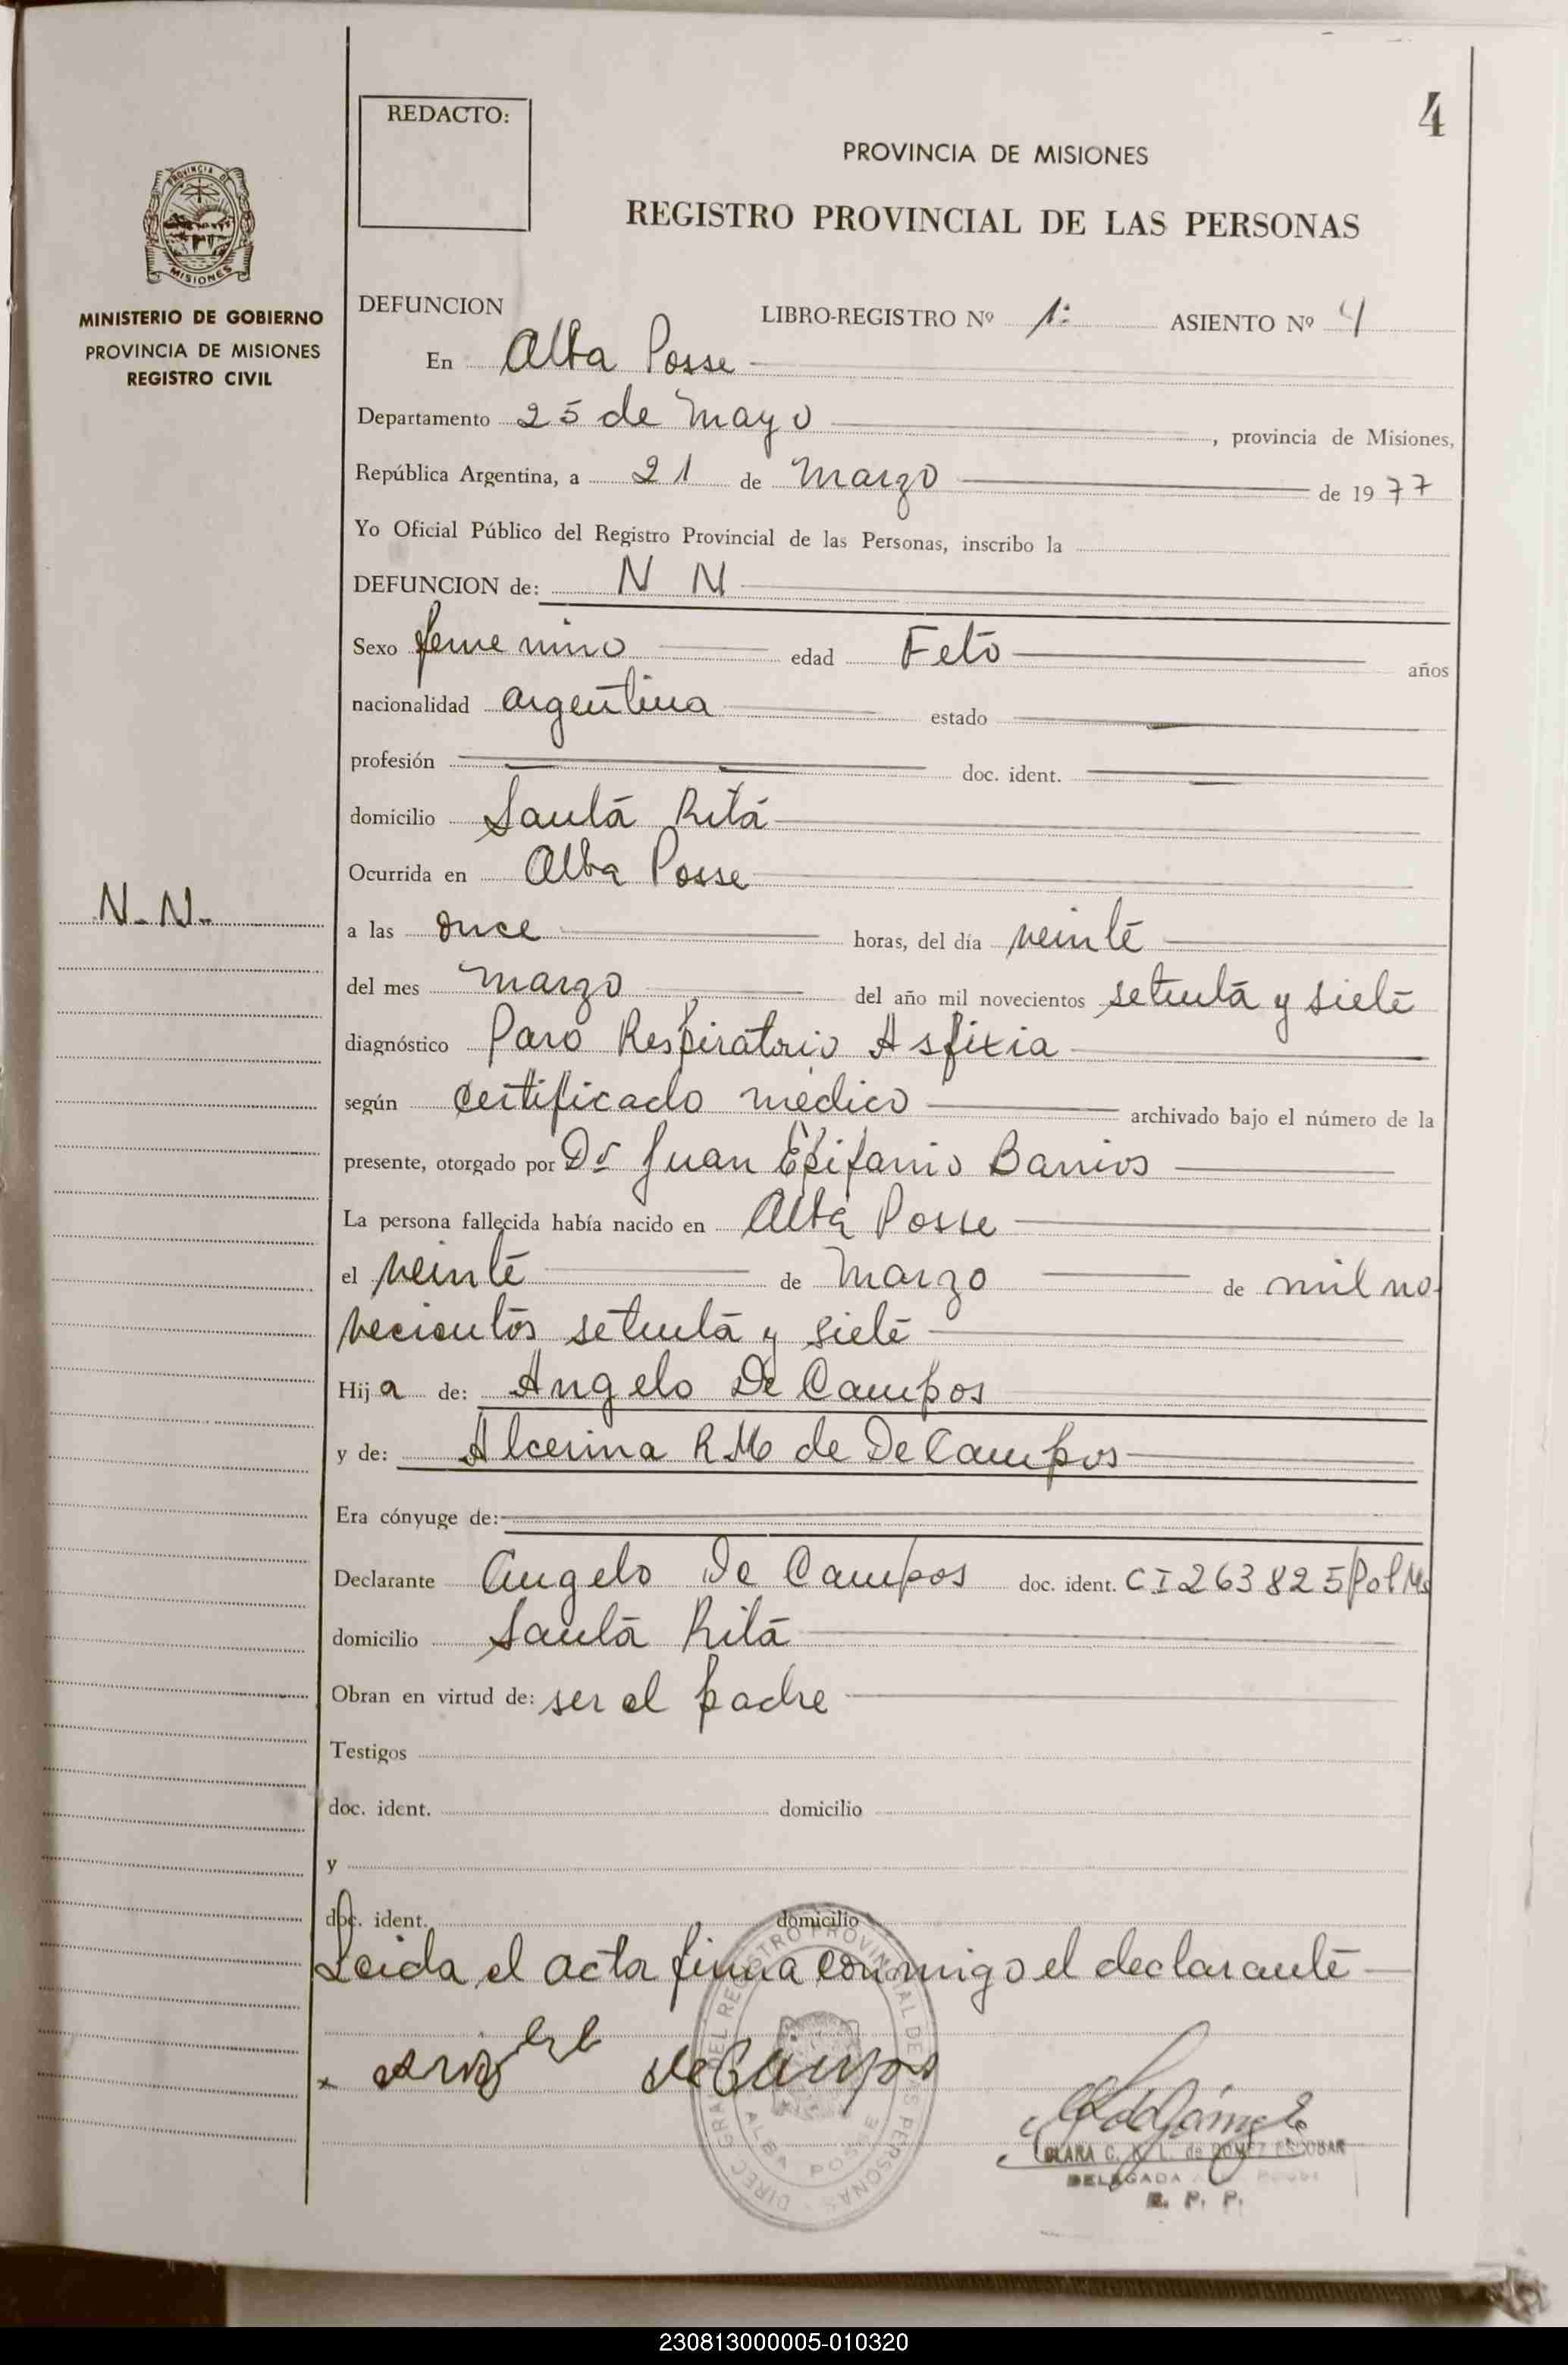 4
REDACTO:
PROVINCIA DE MISIONES
REGISTRO PROVINCIAL DE LAS PERSONAS
PROVINCIA DE
MISIONES
MINISTERIO DE GOBIERNO
PROVINCIA DE MISIONES
REGISTRO CIVIL
DEFUNCION LIBRO-REGISTRO Nº 1º ASIENTO Nº 4
En Alba Posse
Departamento 25 de Mayo, provincia de Misiones,
República Argentina, a 21 de Marzo de 1977
Yo Oficial Público del Registro Provincial de las Personas, inscribo la
DEFUNCION de: N N
Sexo femenino edad Feto años
nacionalidad argentina estado
profesión doc. ident.
domicilio Santa Rita
Ocurrida en Alba Posse
N.N.
a las once horas, del día veinte
del mes marzo del año mil novecientos setenta y siete
diagnóstico Paro Respiratorio Asfixia
según certificado médico archivado bajo el número de la
presente, otorgado por Dr Juan Epifanio Barrios
La persona fallecida había nacido en Alba Posse
el veinte de Marzo de mil no-
vecientos setenta y siete
Hija de: Angelo De Campos
y de: Alcerina R M de De Campos
Era cónyuge de:
Declarante Angelo De Campos doc. ident. CI 263825 Pol Ms
domicilio Santa Rita
Obran en virtud de: ser el padre
Testigos
doc. ident. domicilio
y
doc. ident. domicilio
Leida el acta firma conmigo el declarante
x De Campos
DIREC GRAL DEL REGISTRO PROVINCIAL DE LAS PERSONAS
ALBA POSSE
CLARA C. K. L. de GOMEZ ESCOBAR
DELEGADA Alba Posse
R. P. P.
230813000005-010320